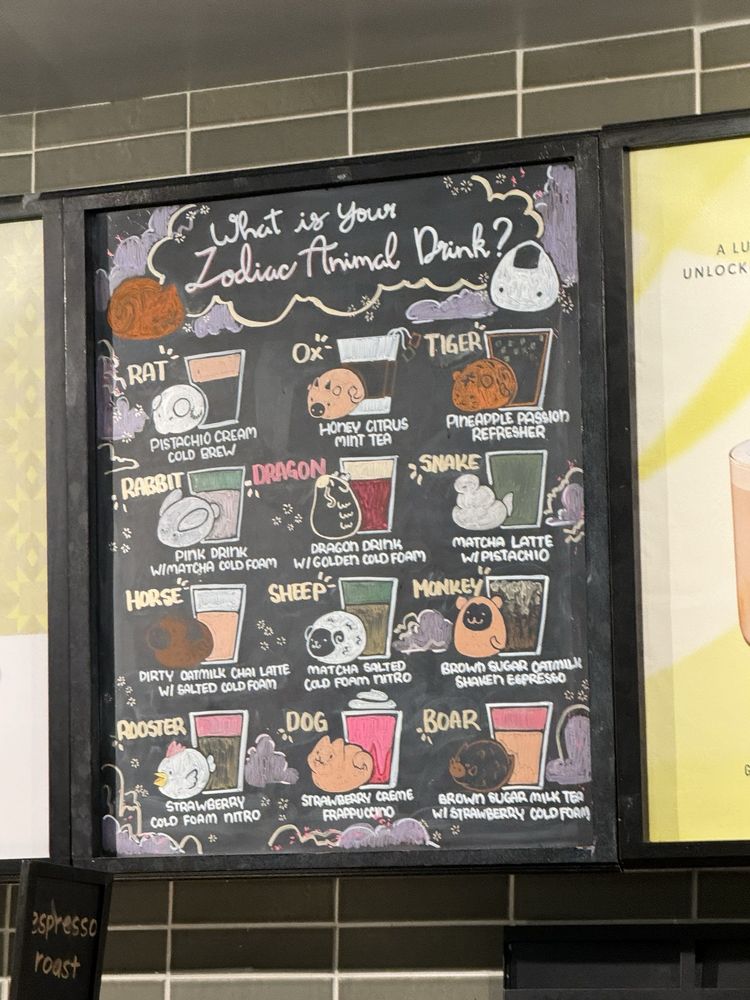 What is Your
Zodiac Animal Drink?
RAT
PISTACHIO CREAM
COLD BREW
OX
HONEY CITRUS
MINT TEA
TIGER
PINEAPPLE PASSION
REFRESHER
RABBIT
PINK DRINK
W/ MATCHA COLD FOAM
DRAGON
DRAGON DRINK
W/ GOLDEN COLD FOAM
SNAKE
MATCHA LATTE
W/ PISTACHIO
HORSE
DIRTY OATMILK CHAI LATTE
W/ SALTED COLD FOAM
SHEEP
MATCHA SALTED
COLD FOAM NITRO
MONKEY
BROWN SUGAR OATMILK
SHAKEN ESPRESSO
ROOSTER
STRAWBERRY
COLD FOAM NITRO
DOG
STRAWBERRY CREME
FRAPPUCCINO
BOAR
BROWN SUGAR MILK TEA
W/ STRAWBERRY COLD FOAM
A LU
UNLOCK
G
espresso
roast